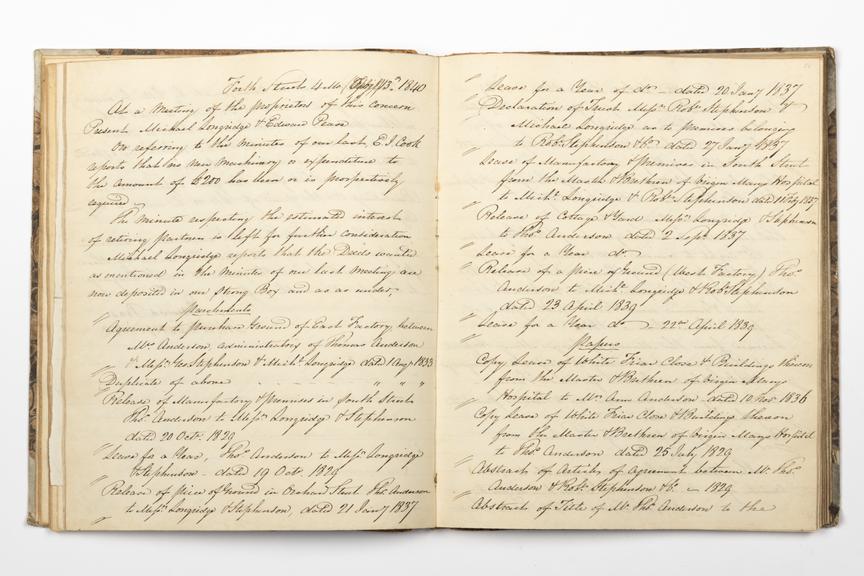 Forth Street 4 Mo (April) 13th 1840
At a Meeting of the proprietors of this concern
Present Michael Longridge & Edward Pease
On referring to the Minutes of our last, E. J. Cook
reports that no new Machinery or expenditure to
the amount of £200 has been or is prospectively
required
The Minute respecting the estimated interest
of retiring partner is left for further consideration
Michael Longridge reports that the Deeds wanted
as mentioned in the Minutes of our last Meeting are
now deposited in our strong Box and as as under,
Parchments
" Agreement to purchase Ground of East Factory, between
Mrs Anderson, administratrix of Thomas Anderson
& Messrs Geo Stephenson & Michl Longridge dated 1 Augt 1833
" Duplicate of above " " "
" Release of Manufactory & premises in South Street
Thos Anderson to Messrs Longridge & Stephenson
dated 20 Octr 1829
" Lease for a Year, Thos Anderson to Messrs Longridge
& Stephenson - dated 19 Octr 1829
" Release of piece of Ground in Orchard Street Thos Anderson
" to Messrs Longridge & Stephenson, dated 21 Jany 1837
" Lease for a Year of do - dated 20 Jany 1837
" Declaration of Trust Messrs Robt Stephenson &
Michael Longridge as to premises belonging
to Robt Stephenson & Co dated 27 Jany 1837
" Lease of Manufactory & Premises in South Street
from the Master & Brethren of Virgin Marys Hospital
to Michl Longridge & Robt Stephenson dated Feby 1837
" Release of Cottage & Land Messrs Longridge & Stephenson
to Thos Anderson dated 2 Sepr 1837
" Lease for a Year do
" Release of a piece of Ground (West Factory) Thos
Anderson to Michl Longridge & Robt Stephenson
dated 23 April 1839
" Lease for a Year do - 22nd April 1839
Papers
" Copy Lease of White Friar Close & Buildings thereon
from the Master & Brethren of Virgin Marys
Hospital to Mrs Ann Anderson - dated 10 Novr 1836
" Copy Lease of White Friar Close & Buildings thereon
from the Master & Brethren of Virgin Marys Hospital
" to Thos Anderson dated 25 July 1829
" Abstract of Articles of agreement between Mr Thos
" Anderson & Robt Stephenson & Co - 1829
" Abstract of Title of Mr Thos Anderson to the